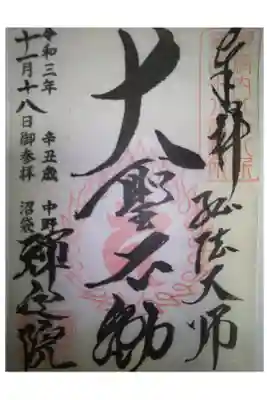 奉拝 弘法大師
大聖不動
令和三年 辛丑歳 中野
十一月十八日御参拝 沼袋
禅定院